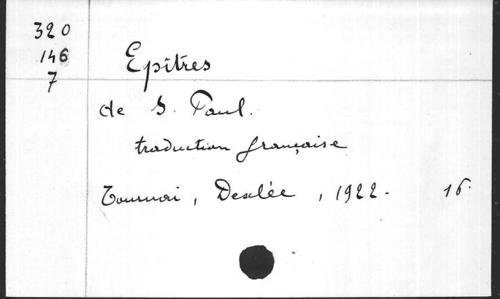 320
146
7
Epîtres
de S. Paul.
traduction française
Tournai, Desclée, 1922. 16°